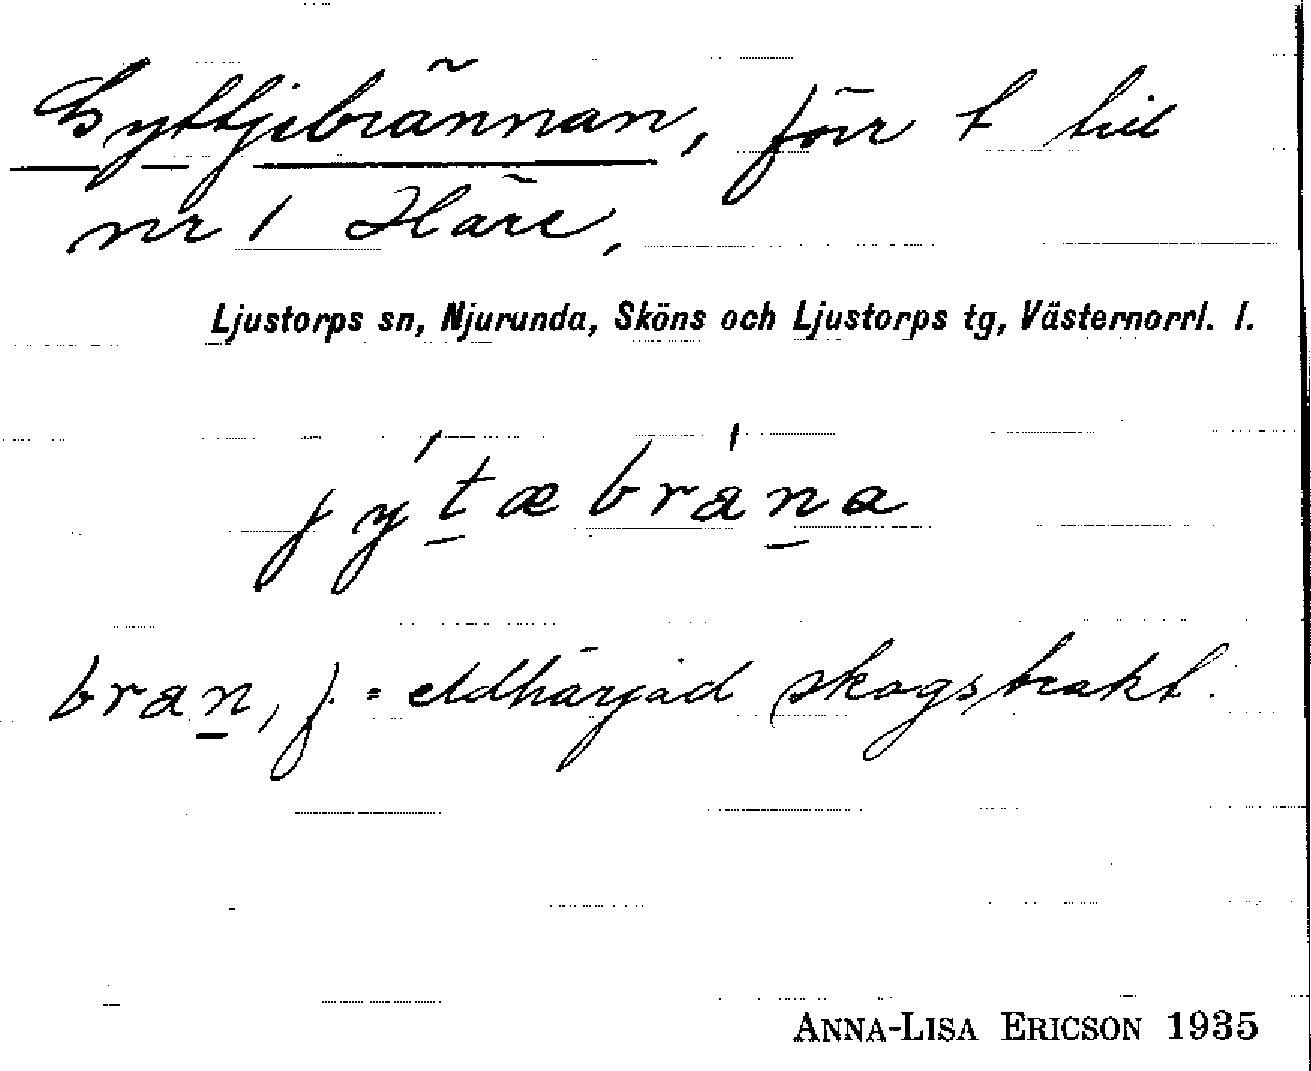 Gyttjebrännan, förr t till
nr 1 Häre,
Ljustorps sn, Njurunda, Sköns och Ljustorps tg, Västernorrl. l.
jýt̲æbràn̲a
bran̲, f. = eldhärjad skogstrakt.
ANNA-LISA ERICSON 1935